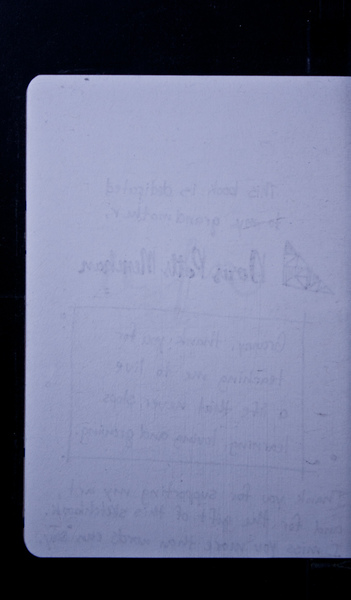 This book is dedicated
to my grandmother,
Doris
Granny, thank you for
teaching me to live
a life that never stops
learning, loving and growing.
Thank you for supporting my art,
and for the gift of this sketchbook.
miss you more than words can say.